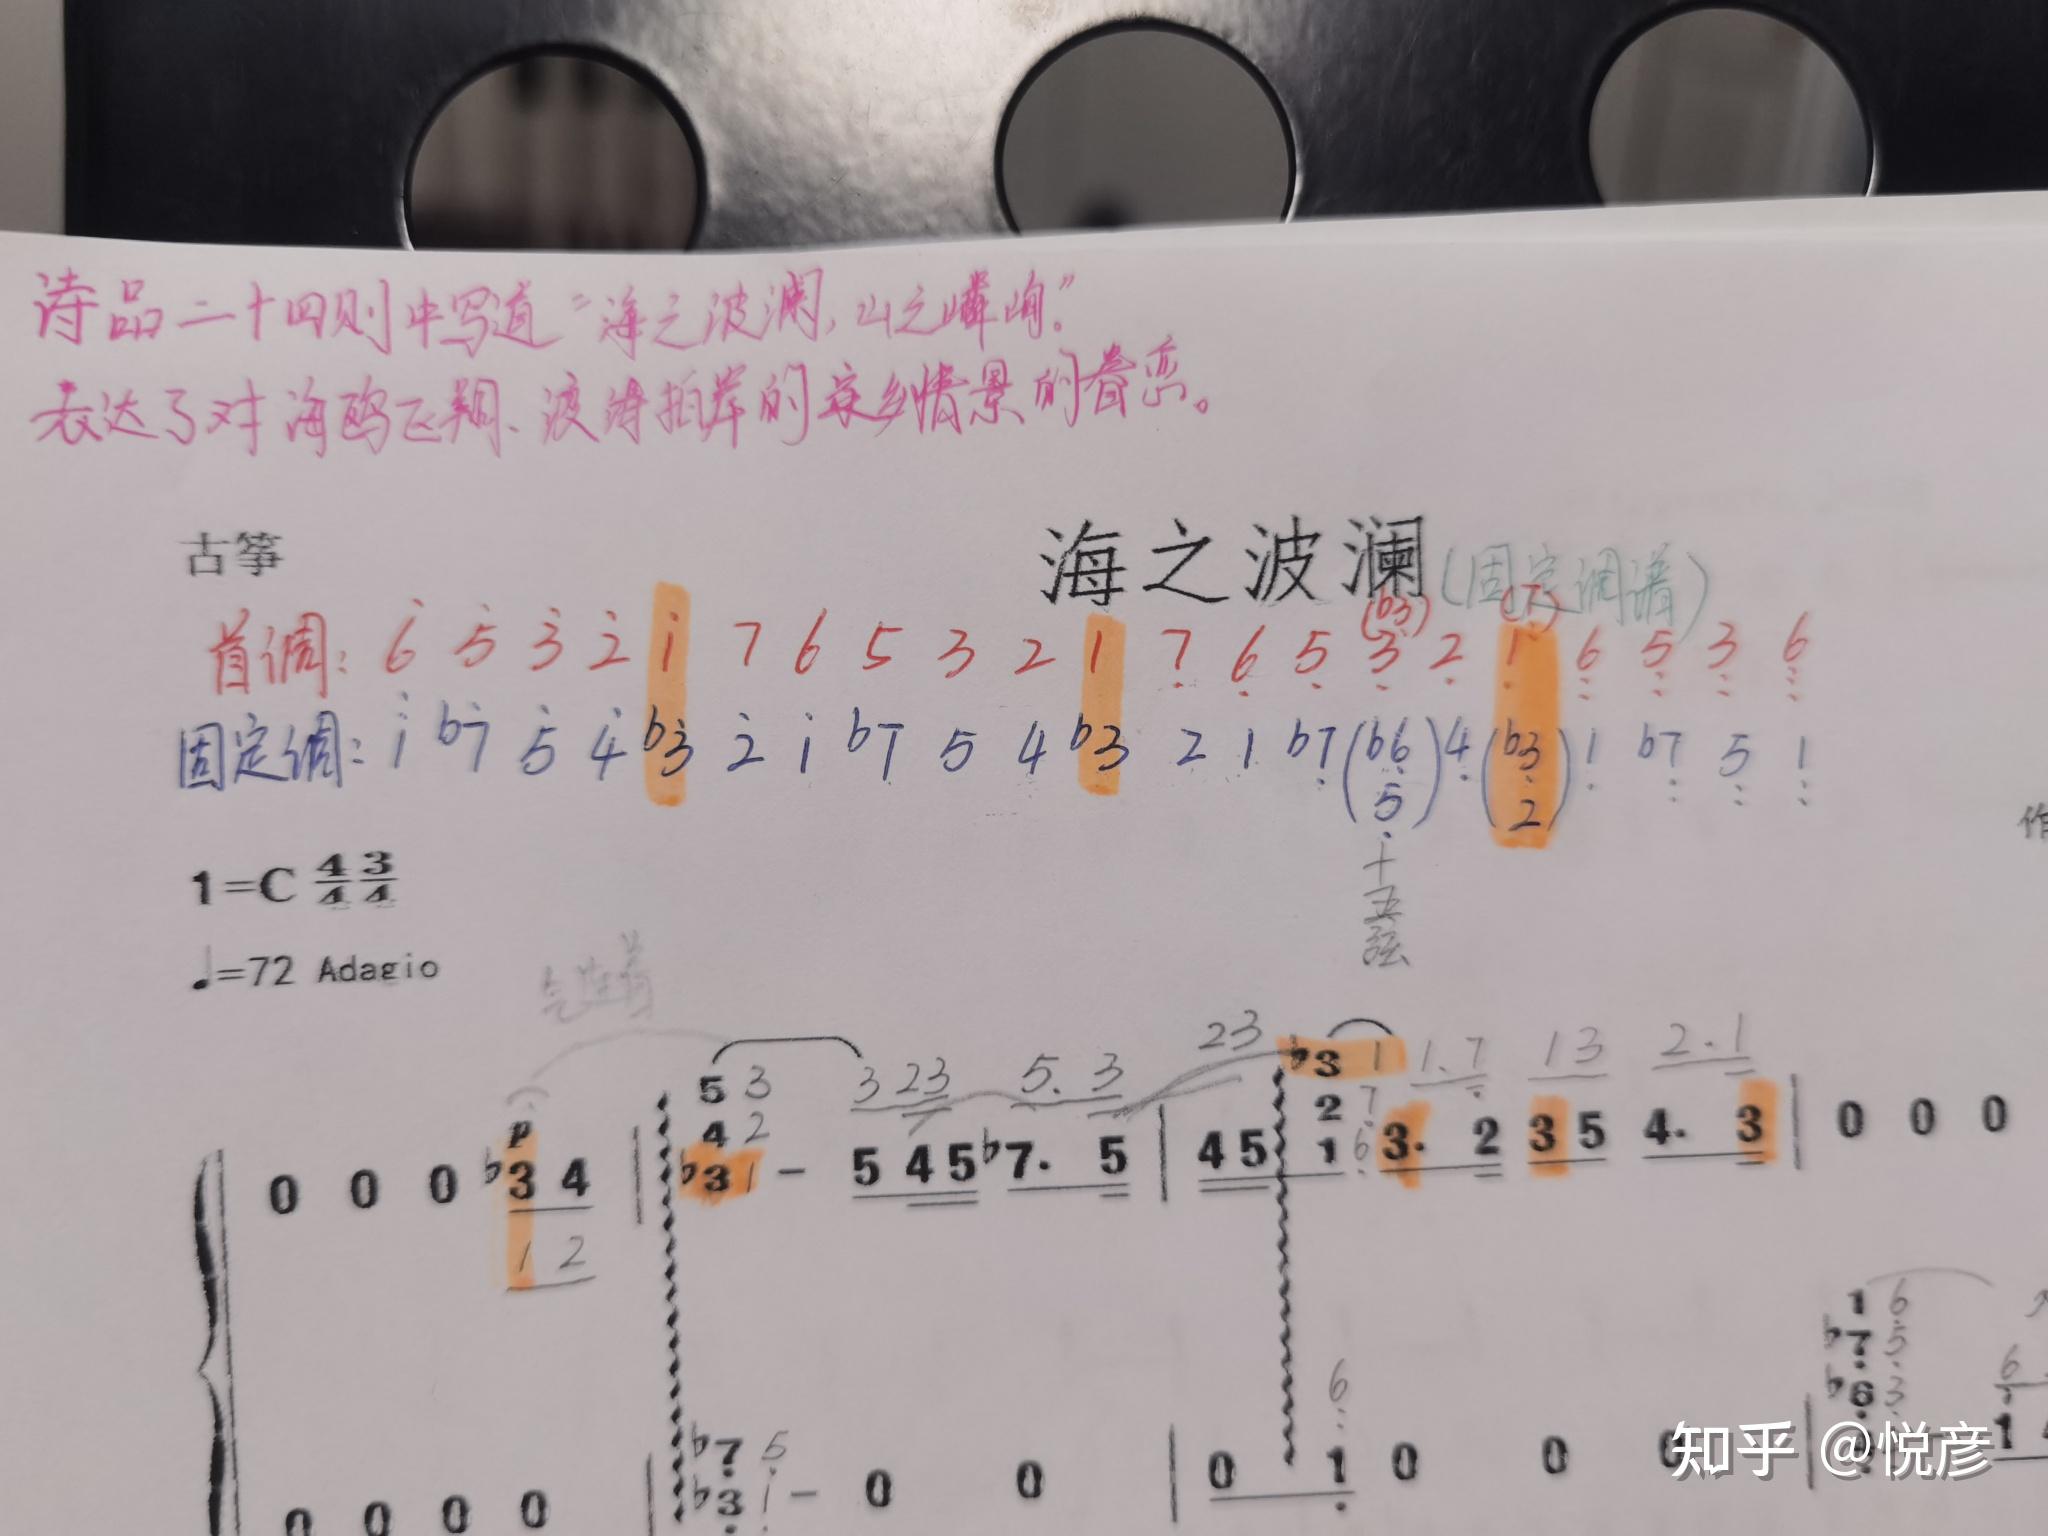 诗品二十四则中写道“海之波澜,山之嶙峋。”
表达了对海鸥飞翔、波涛拍岸的家乡情景的眷恋。
古筝
海之波澜(固定调谱)
(b3) (7)
首调: 6 5 3 2 1 7 6 5 3 2 1 7 6 5 3 2 1 6 5 3 6
固定调: 1 b7 5 4 b3 2 1 b7 5 4 b3 2 1 b7 (b6 5) 4 (b3 2) 1 b7 5 1
作
十五弦
1=C 4/4 3/4
♩=72 Adagio
23 ♭3 1 1.7 13 2.1
5 3 3 23 5. 3 2 7
p 4 2
0 0 0 ♭3 4 ♭3 1 – 5 45 ♭7. 5 45 1 6 3. 2 3 5 4. 3 0 0 0
1 2
1 6
♭7 5
6 ♭6 3 6
♭7 5 1
0 0 0 0 ♭3 1 – 0 0 0 1 0 0 0
知乎 @悦彦